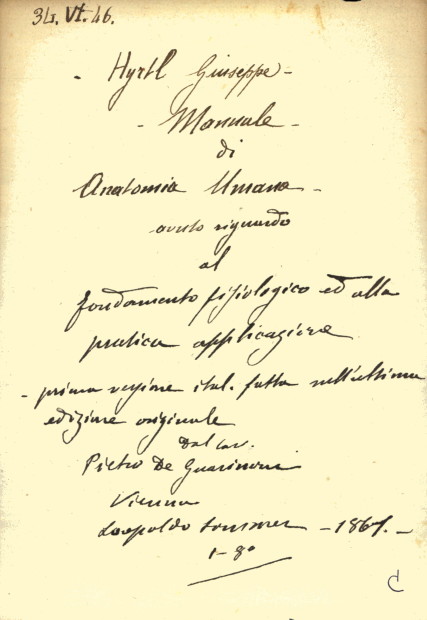 34. VI. 46.
- Hyrtl Giuseppe -
- Manuale -
di
Anatomia Umana -
avuto riguardo
al
fondamento fisiologico ed alla
pratica applicazione
- prima versione ital. fatta sull'ultima
edizione originale
Dal cav.
Pietro De Guarinoni
Vienna
Leopoldo Sommer - 1867. -
1 - 8°
C